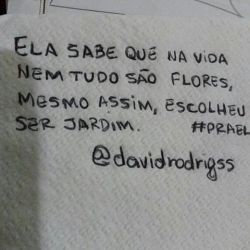 ELA SABE QUE NA VIDA
NEM TUDO SÃO FLORES,
MESMO ASSIM, ESCOLHEU
SER JARDIM. #PRAEL
@davidrodrigss